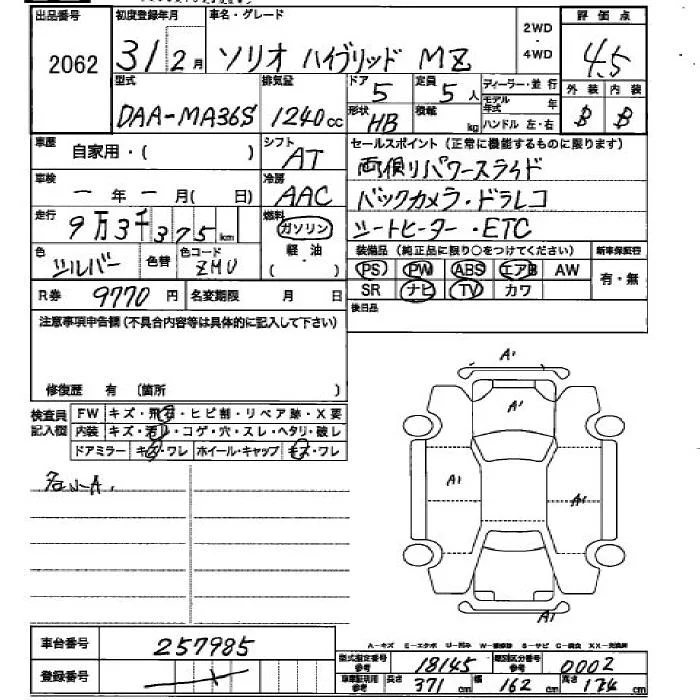 出品番号 初度登録年月 車名・グレード 2WD・4WD 評価点
2062 31 2月 ソリオ ハイブリッド MZ 4.5
型式 排気量 ドア 5 定員 5人 ディーラー・並行 外装 内装
DAA-MA36S 1240cc 形状 HB 積載 kg モデル年式 年 B B
ハンドル 左・右
車歴 自家用・( ) シフト AT セールスポイント(正常に機能するものに限ります)
両側リパワースライド
車検 ー年ー月(日) 冷房 AAC バックカメラ・ドラレコ
走行 9万3千375km 燃料 ガソリン 軽油 ・( ) シートヒーター・ETC
色 シルバー 色替 色コード ZMU 装備品(純正品に限り○をつけてください) 新車保証書
PS PW ABS エアB AW 有・無
R券 9770円 名変期限 月 日 SR ナビ TV カワ
注意事項申告欄(不具合内容等は具体的に記入して下さい) 後日品
修復歴 有 (箇所 )
検査員記入欄 FW キズ・飛石・ヒビ割・リペア跡・X要
内装 キズ・汚れ・コゲ・穴・スレ・ヘタリ・破レ
ドアミラー キズ・ワレ ホイール・キャップ キズ・ワレ
A1
A1
A1 A1
A1
車台番号 257985
A-キズ E-エクボ U-凹み W-補修跡 S-サビ C-腐食 XX-交換済
登録番号 型式指定番号参考 18145 類別区分番号参考 0002
車庫証明用参考 長さ 371cm 幅 162cm 高さ 174cm